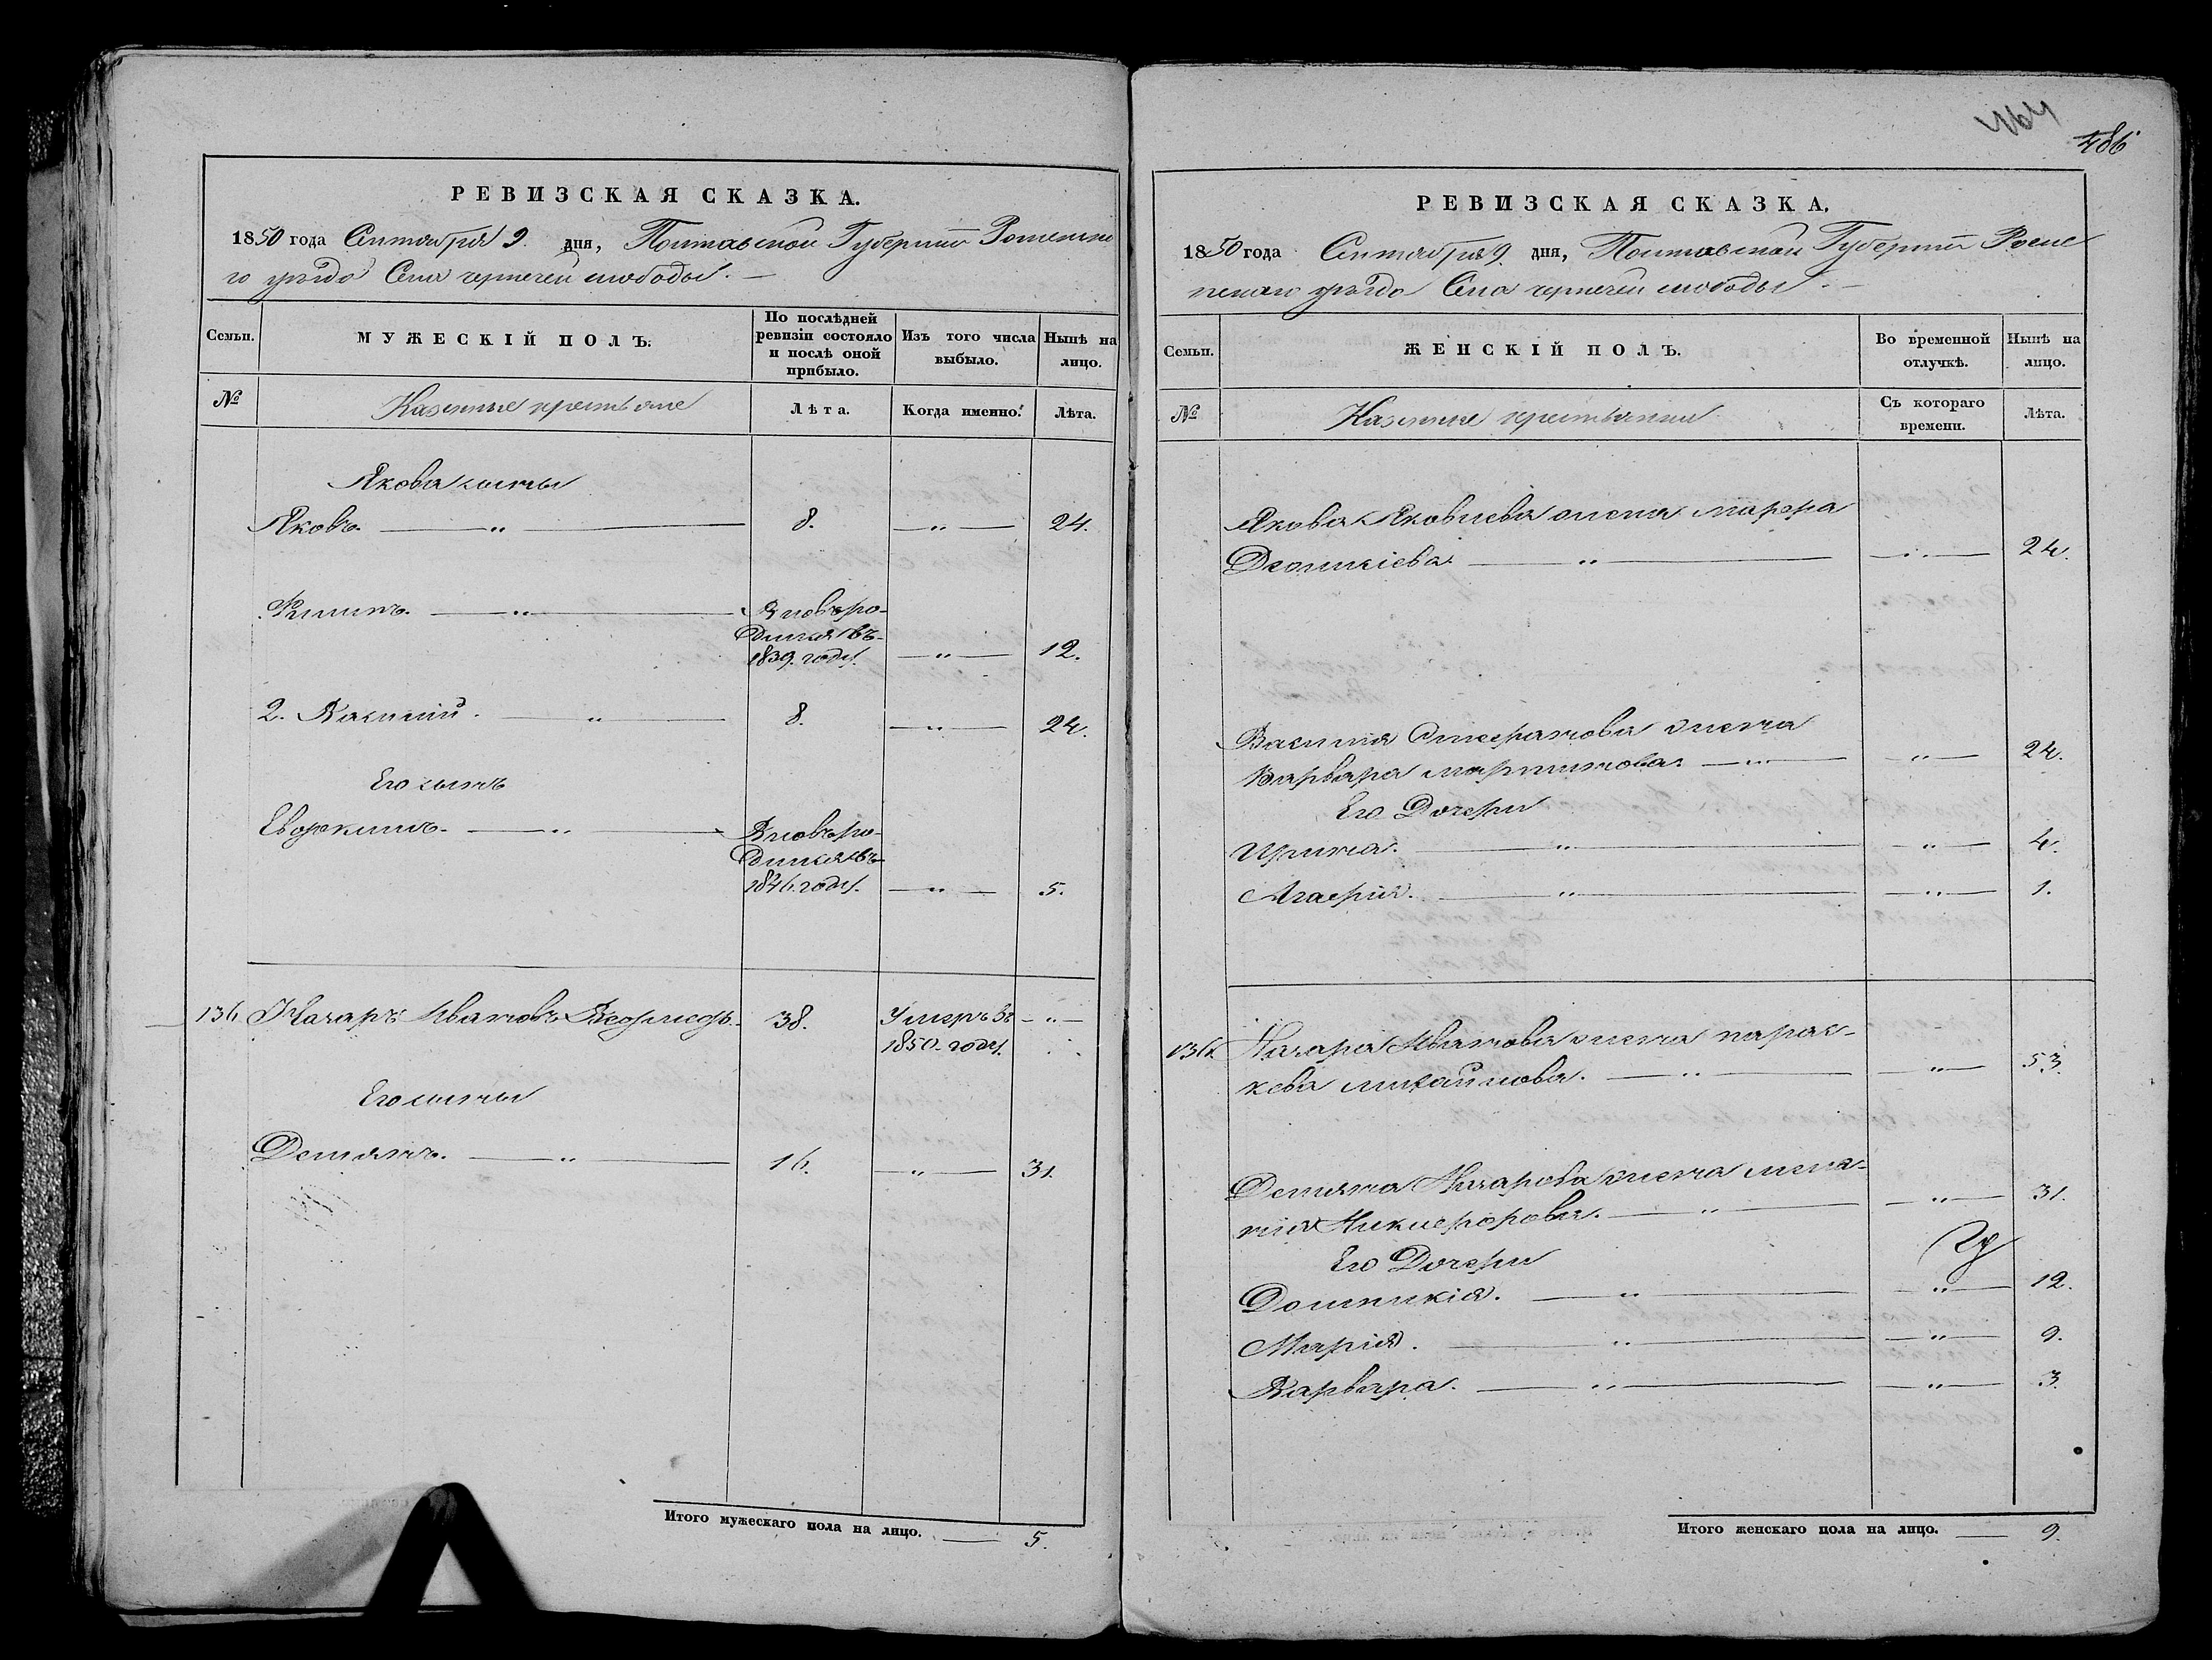 РЕВИЗСКАЯ СКАЗКА.
1850 года Сентября 9. дня, Полтавской Губернии Роменска
го уѣзда Села чернечей слободы.
Семьи.
МУЖЕСКІЙ ПОЛЪ.
По послѣдней
ревизіи состояло
и послѣ оной
прибыло.
Изъ того числа
выбыло.
Нынѣ на
лицо.
№
Казенные крестьяне
Лѣта.
Когда именно.
Лѣта.
Якова сыны
Яковъ. — " — 8. — " — 24.
Филипъ. — " — Вновь ро-
дился въ
1839. году. — " — 12.
2. Василий. — " — 8. — " — 24.
Его сынъ
Евфокимъ. — " — Вновь ро-
дился въ
1846. году. — " — 5.
136. Назаръ Ивановъ 38. Умеръ въ — " —
1850. году.
Его сыны
Демянъ. — " — 16. — " — 31.
Итого мужескаго пола на лицо. — 5.
464
486
РЕВИЗСКАЯ СКАЗКА.
1850 года Сентября 9. дня, Полтавской Губернии Роме
нскаго уѣзда Села чернечей слободы. —
Семьи.
ЖЕНСКІЙ ПОЛЪ.
Во временной
отлучкѣ.
Нынѣ на
лицо.
№
Казенные крестьянки
Съ котораго
времени.
Лѣта.
Якова Яковлева жена марфа
— " — — " — 24.
Василия Стефанова жена
Варвара мартинова. — " — — " — 24.
Его Дочери
Ирина. — " — — " — 4.
Агафия. — " — — " — 1.
136. Назара Иванова жена парас-
кева михайлова. — " — — " — 53.
Демяна Назарова жена мела-
ния Никифорова. — " — — " — 31.
Его Дочери
Домникія. — " — — " — 12.
Марія. — " — — " — 9.
Варвара. — " — — " — 3.
Итого женскаго пола на лицо. — 9.